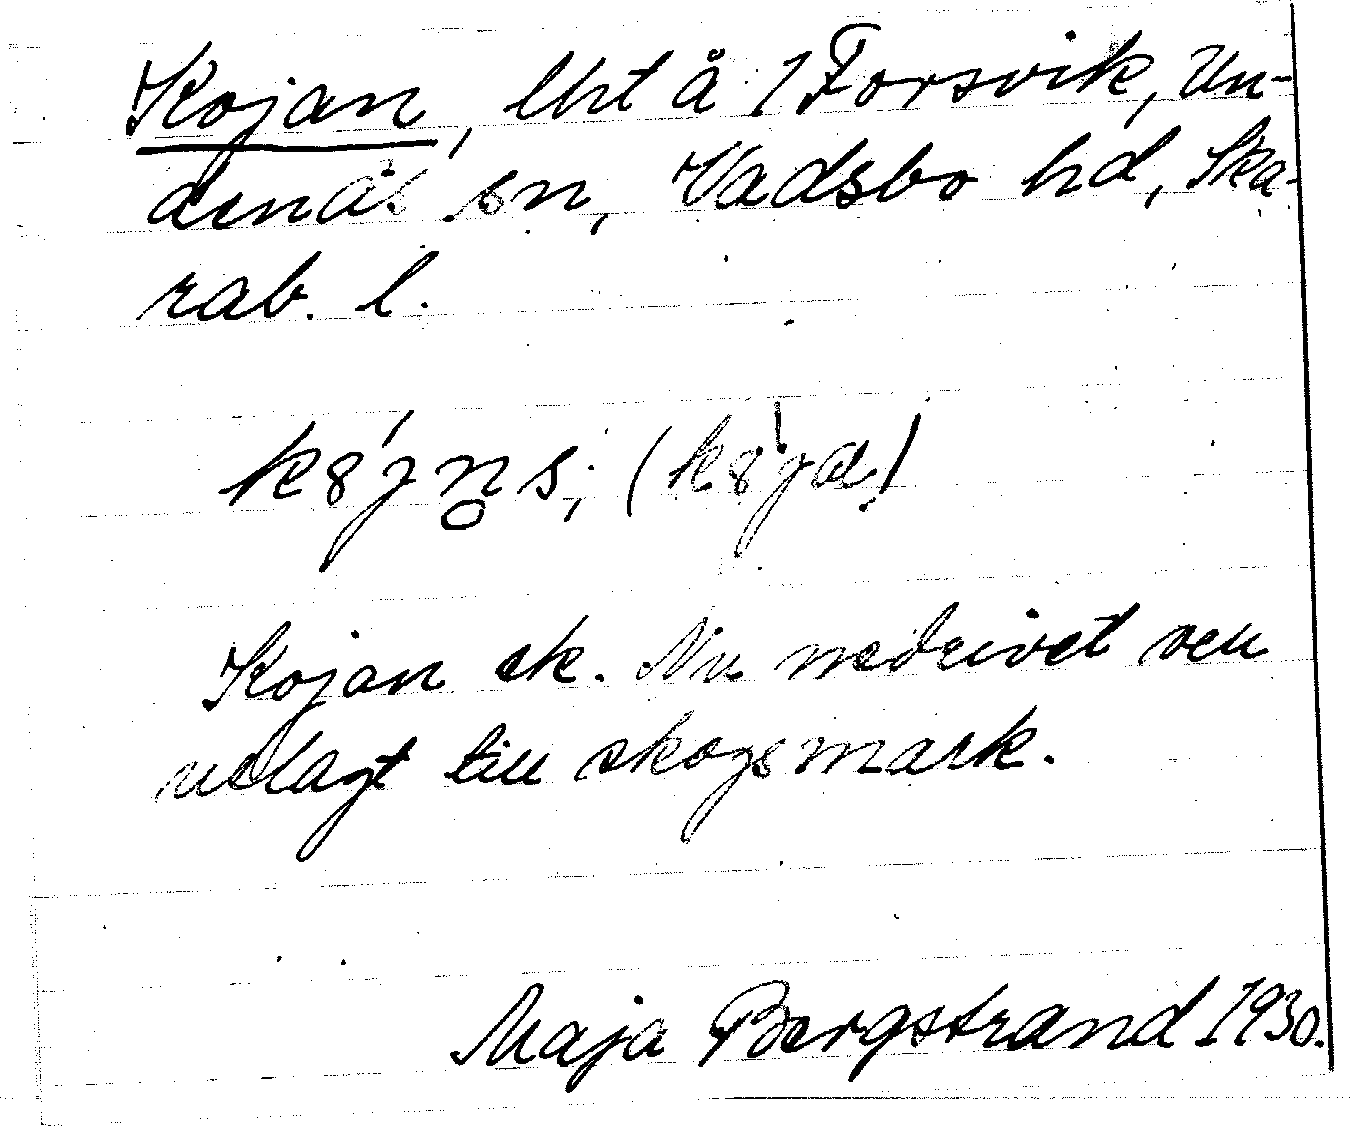 Kojan, lht å 1 Forsvik, Un-
denäs sn, Vadsbo hd, Ska-
rab. l.
k8́jn̥s; (k8̍ja)
Kojan ek. Nu nedrivet och
utlagt till skogsmark.
Maja Bergstrand 1930.